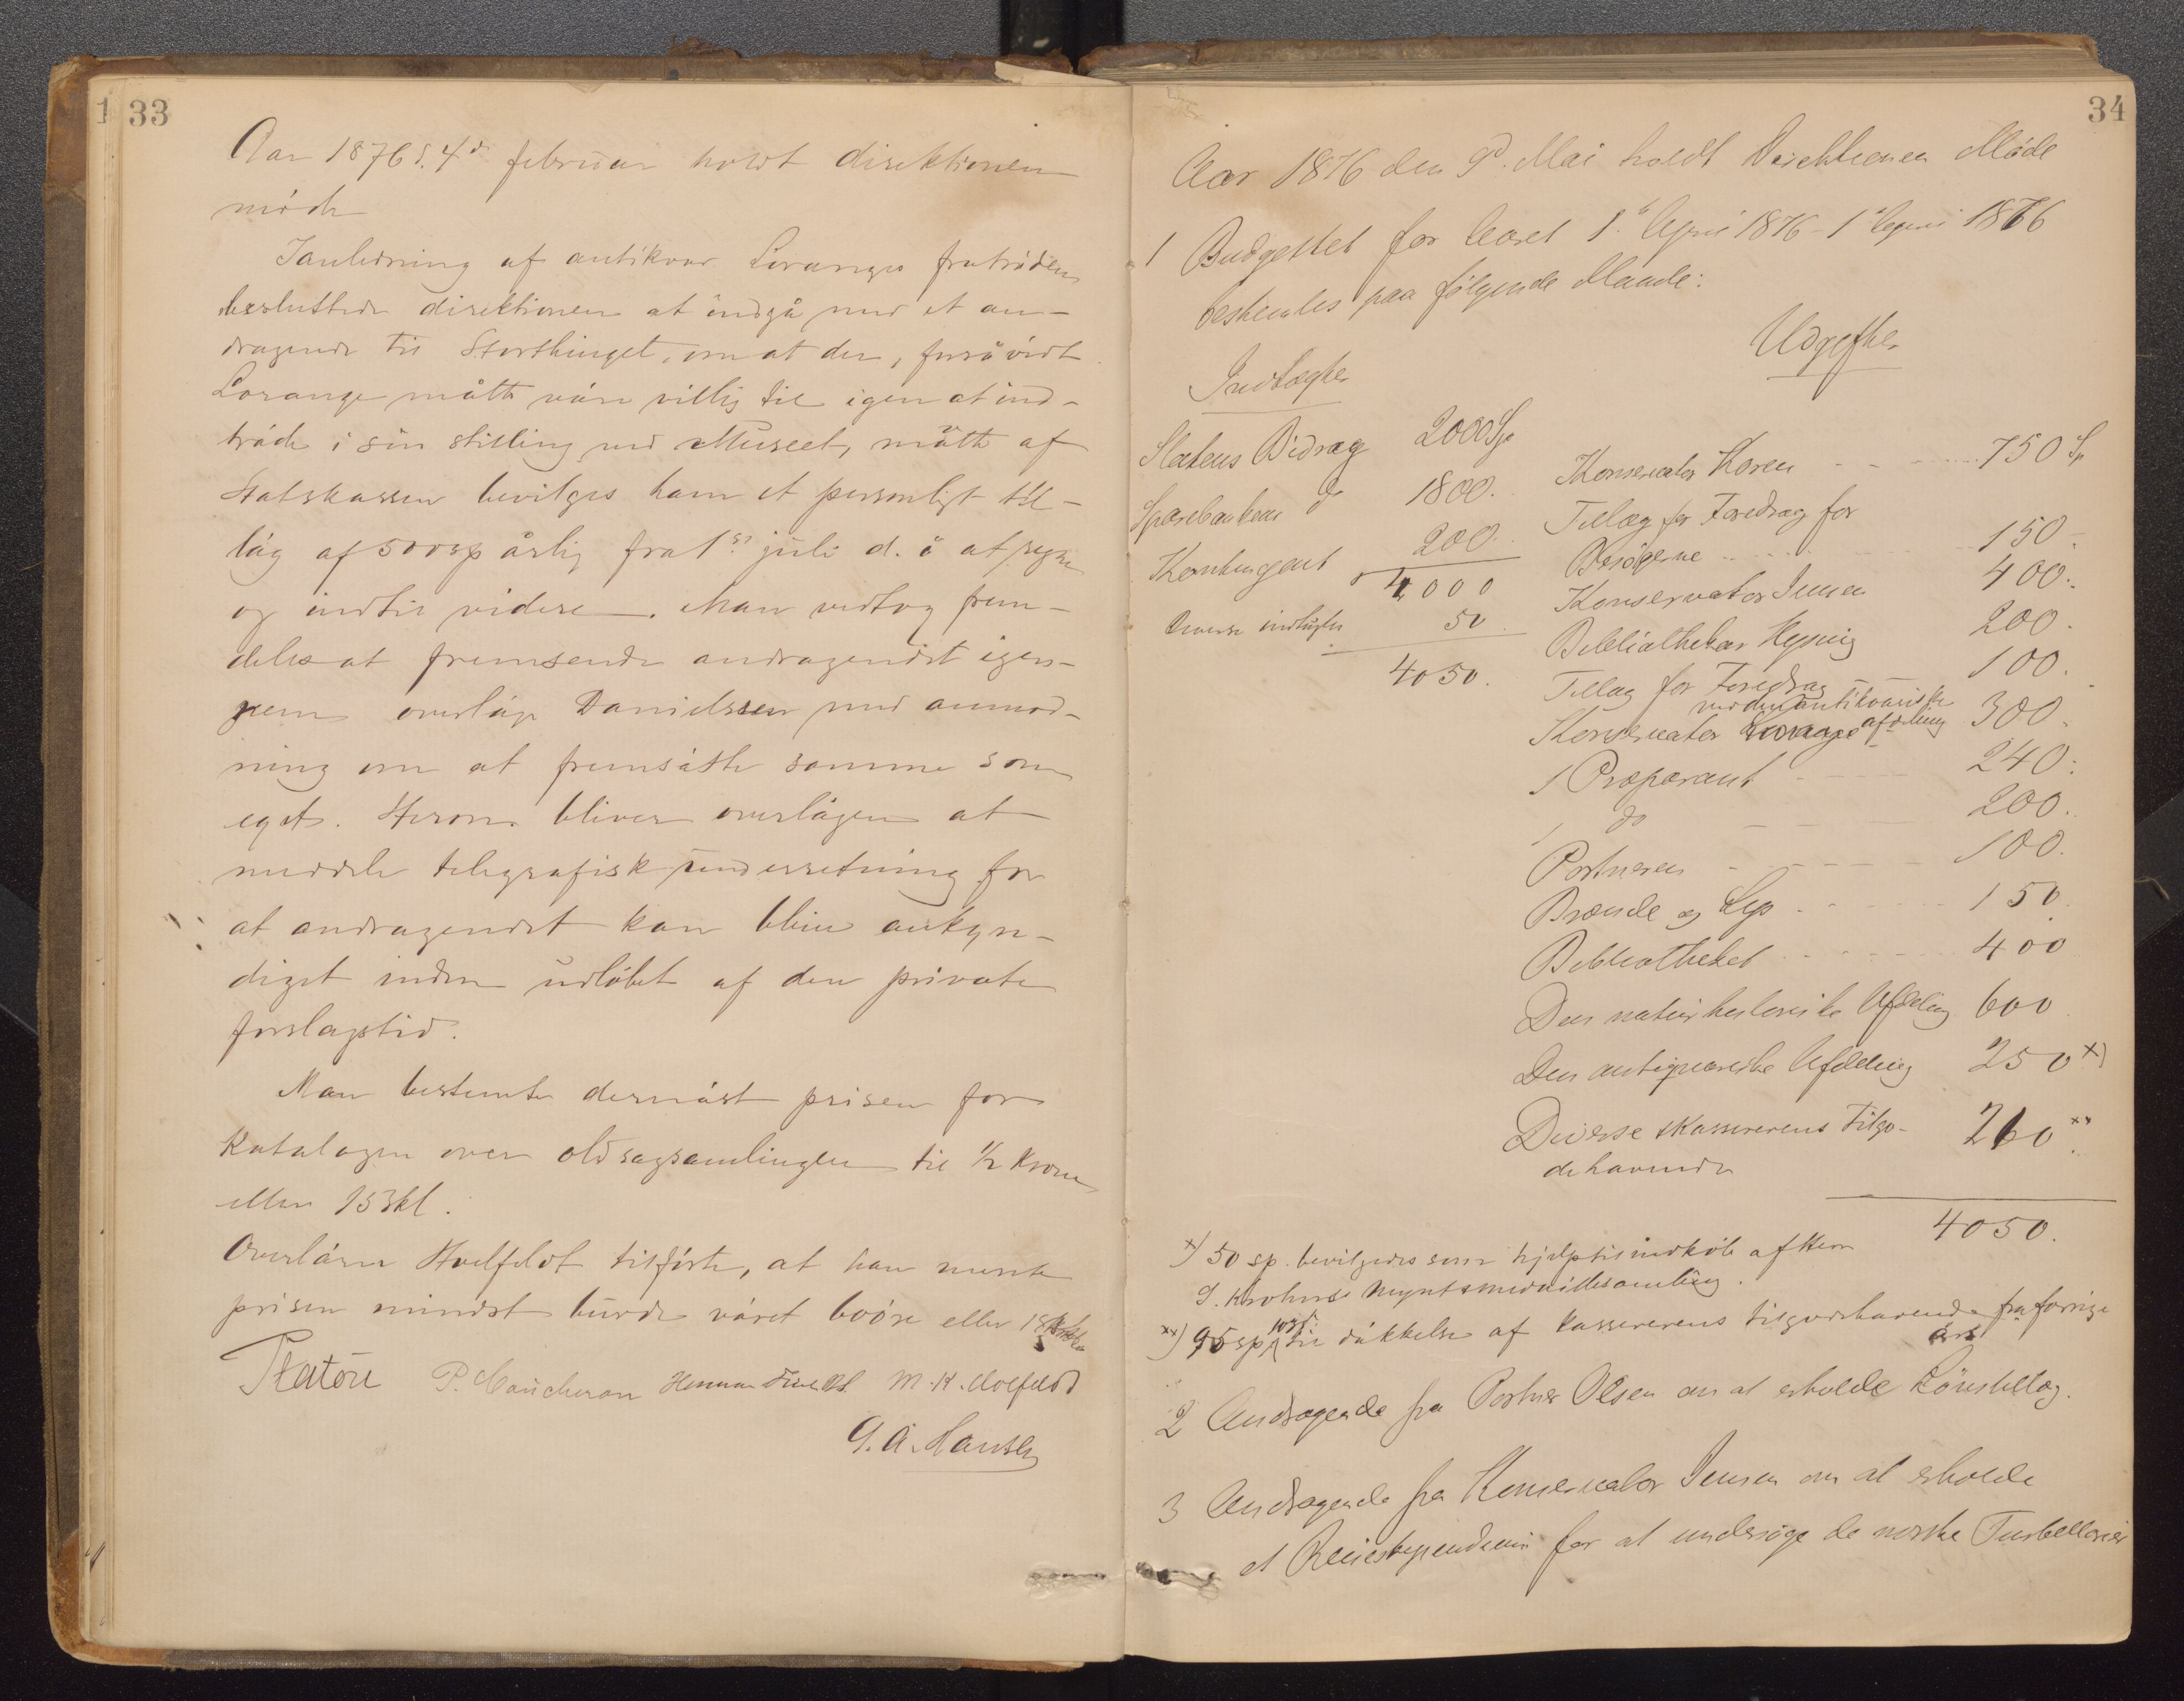 33
Aar 1876 d. 4de februar holdt direktionen
møde
I anledning af antikvar Loranges fratræden
besluttede direktionen at indgå med et an-
dragende til Storthinget, om at der, forsåvidt
Lorange måtte være villig til igen at ind-
træde i sin stilling ved Museet, måtte af
Statskassen bevilges ham et personligt til-
læg af 500 sp årlig fra 1ste juli d. å at regne
og indtil videre. Man vedtog frem-
deles at fremsende andragendet igen-
nem overlæge Danielssen med anmod-
ning om at fremsætte samme som
eget. Herom bliver overlægen at
meddele telegrafisk underretning for
at andragendet kan blive ankyn-
diget inden udløbet af den private
forslagstid.
Man bestemte dernæst prisen for
katalogen over oldsagsamlingen til 1/2 krone
eller 15 skl.
Overlærer Holfeldt tilførte, at han mente
prisen mindst burde været 60 øre eller 18
Platou P. M. H. Holfeldt
G. A. Hansen
34
Aar 1876 den 9d. Mai holdt Direktionen Møde
1 Budgettet for Aaret 1ste April 1876 - 1ste April 1876
bestemtes paa følgende Maade:
Indtægter
Statens Bidrag 2000 Sp
Sparebankens do 1800.
Kontingent 200.
4000
Diverse indtægter 50.
4050.
Udgifter
Konservator Koren 750 Sp
Tillæg for Foredrag for
Besøgerne 150
Konservator Jensen 400.
Bibliothekar 200.
Tillæg for Foredrag 100.
ved den antikvariske
Konservator Lorange afdeling 300.
1 Præparant 240.
1 do 200.
Portneren 100.
Brænde og Lys 150.
Bibliotheket 400
Den naturhistoriske Afdeling 600
Den antiqvariske Afdeling 250 x)
Diverse & kassererens Tilgo- 210 xx
dehavende
4050.
x) 50 sp. bevilgedes som hjælp til indkøb af Herr
Krohns Mynt & medaillesamling.
xx) 95 sp til dækkelse af kassererens tilgodehavende fra forrige
års
2 Andragende fra Portner Olsen om at erholde Lønstillæg.
3 Andragende fra Konservator Jensen om at erholde
et Reisestipendium for at undersøge de norske Turbellarier